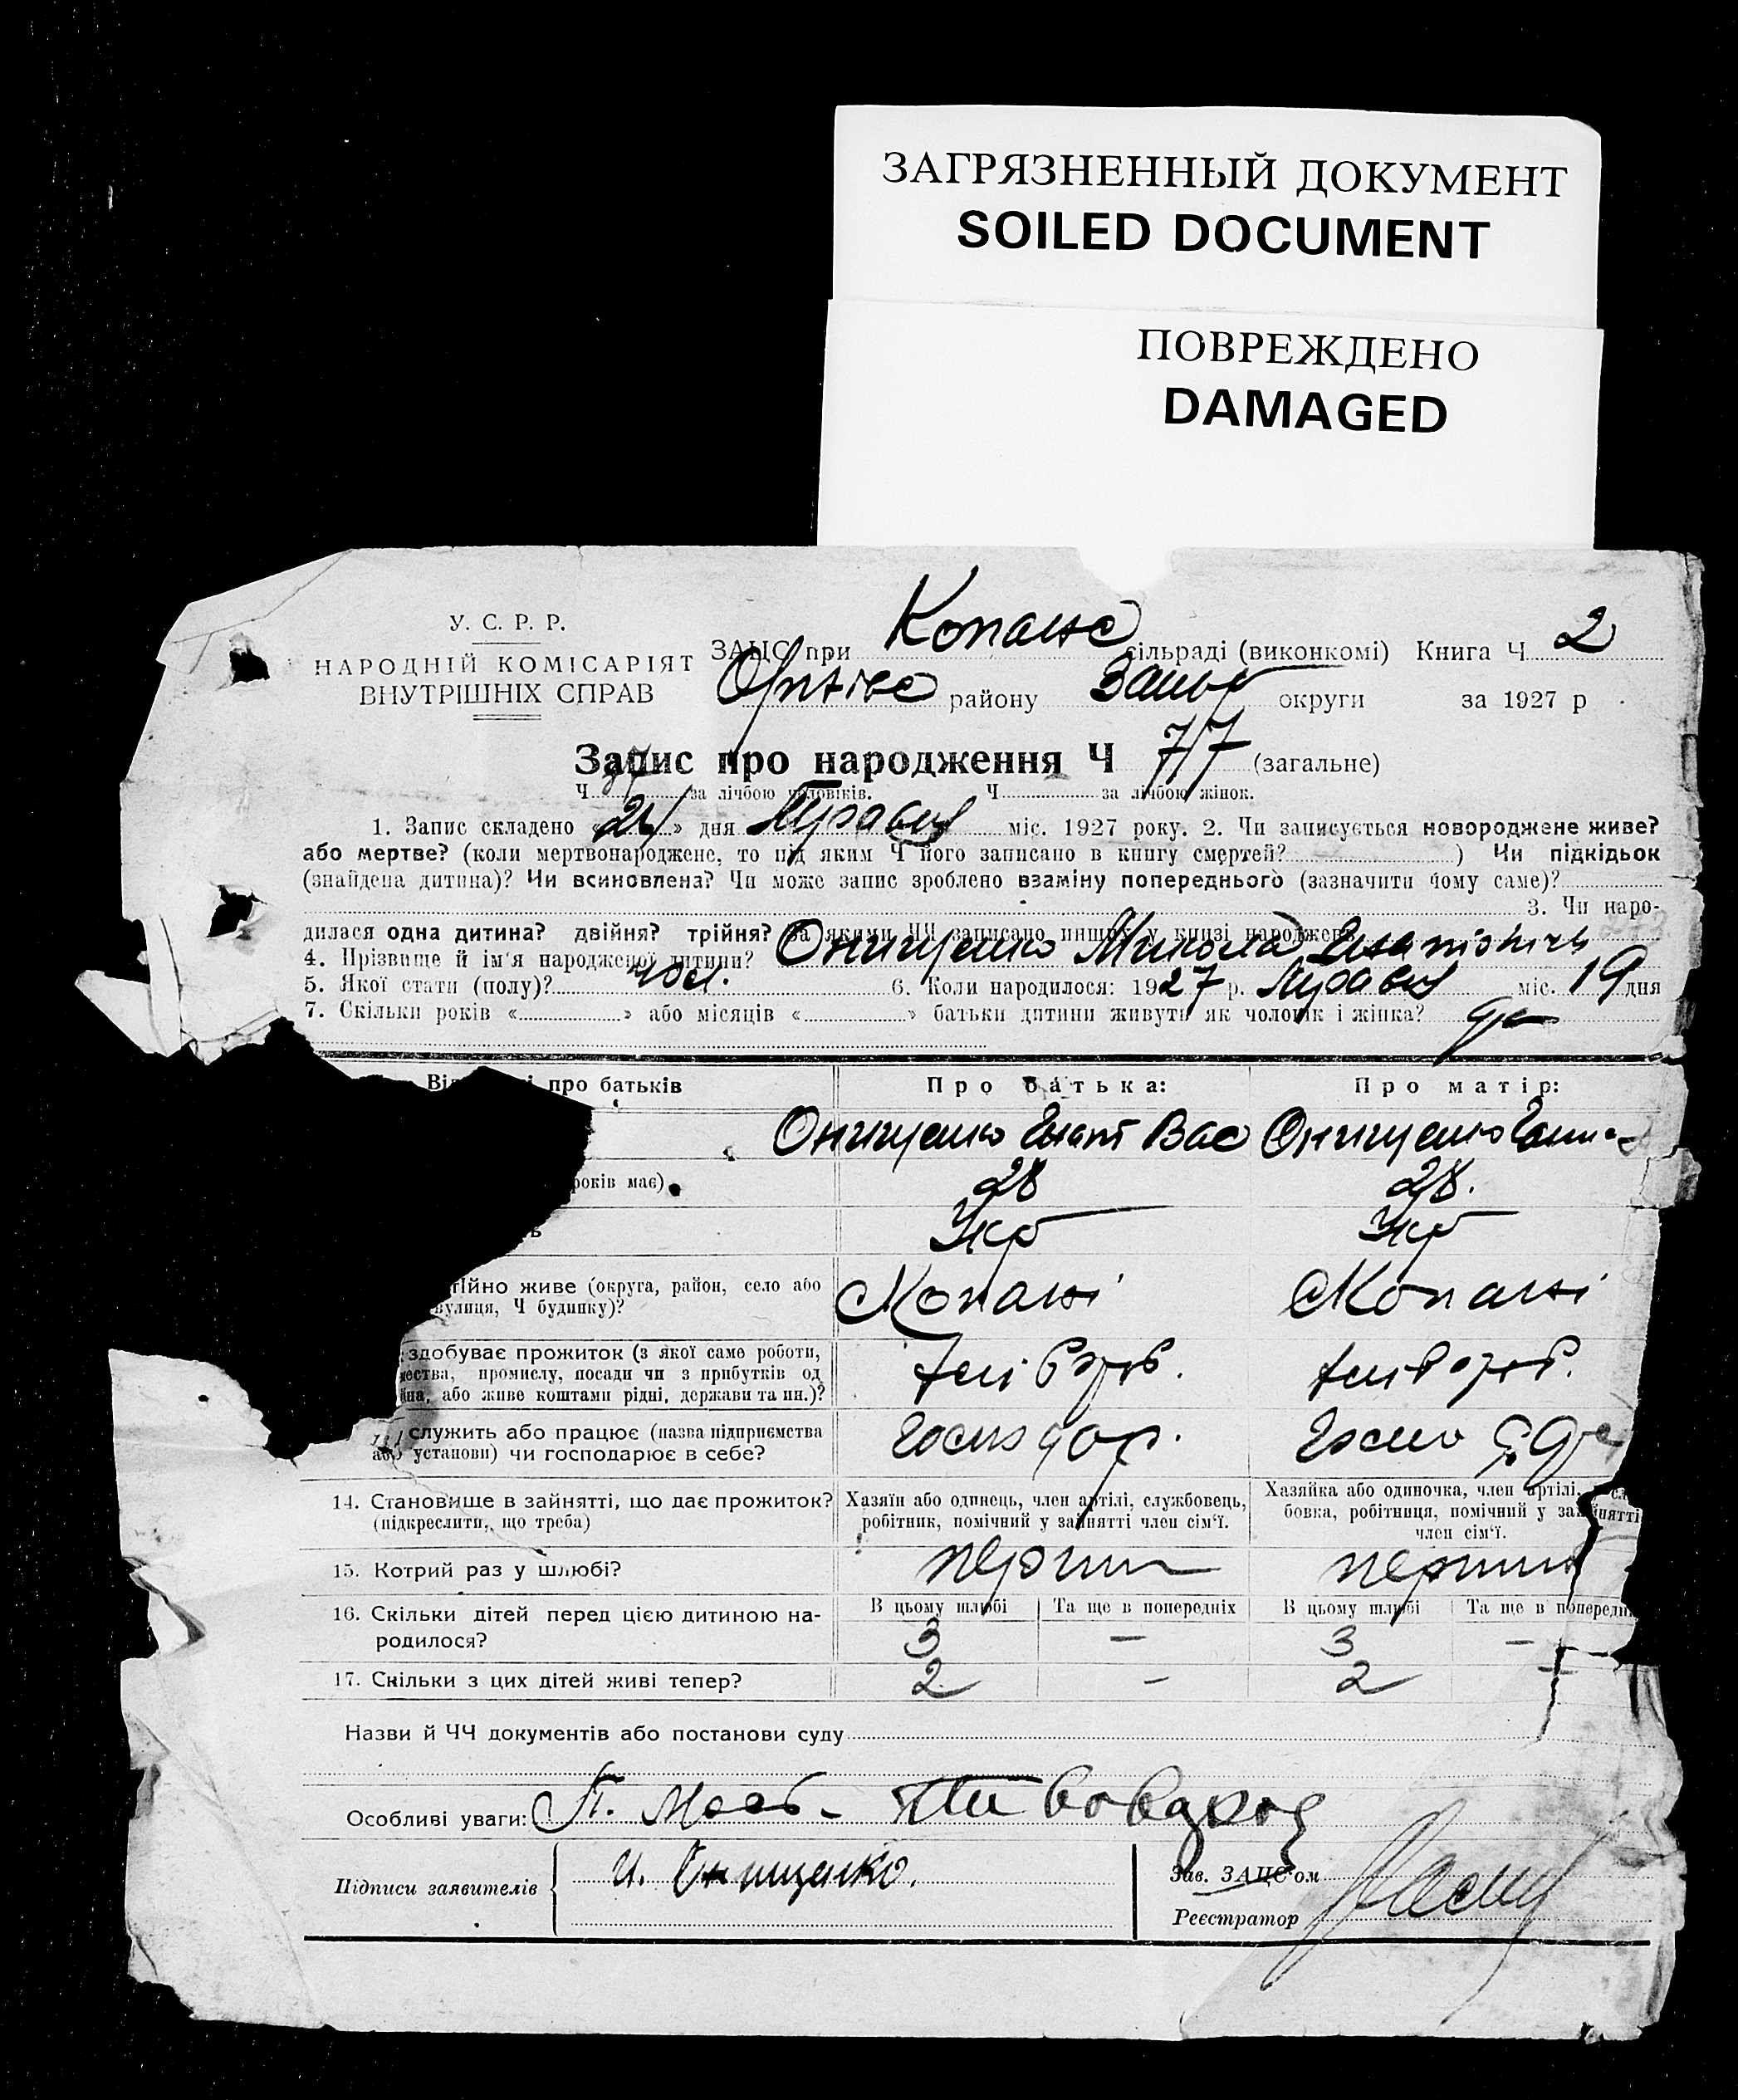 ЗАГРЯЗНЕННЫЙ ДОКУМЕНТ
SOILED DOCUMENT
ПОВРЕЖДЕНО
DAMAGED
У. С. Р. Р.
НАРОДНІЙ КОМІСАРІЯТ
ВНУТРІШНІХ СПРАВ
ЗАЦС при Копансь сільраді (виконкомі) Книга Ч 2
району округи за 1927 р
Запис про народження Ч 77 (загальне)
Ч 37 за лічбою чоловіків. Ч за лічбою жінок.
1. Запис складено « » дня Травня міс. 1927 року. 2. Чи записується новороджене живе?
або мертве? (коли мертвонароджене, то під яким Ч його записано в книгу смертей? ) Чи підкідьок
(знайдена дитина)? Чи всиновлена? Чи може запис зроблено взаміну попереднього (зазначити чому саме)?
3. Чи наро-
дилася одна дитина? двійня? трійня? За якими ЧЧ записано инших у книзі народжень
4. Прізвище й ім'я народженої дитини? Онищенко Микола Гнатович
5. Якої стати (полу)? чол. 6. Коли народилося: 1927 р. Травня міс. 19 дня
7. Скільки років « » або місяців « » батьки дитини живуть як чоловік і жінка?
про батьків Про батька: Про матір:
Онищенко Гнат Вас Онищенко
років має) 28 28.
ь Укр Укр
тійно живе (округа, район, село або
вулиця, Ч будинку)? Копані Копані
здобуває прожиток (з якої саме роботи,
промислу, посади чи з прибутків од
або живе коштами рідні, держави та ин.)? хліброб. хліброб.
служить або працює (назва підприємства
або установи) чи господарює в себе? господар.
14. Становище в зайнятті, що дає прожиток?
(підкреслити, що треба)
Хазяїн або одинець, член артілі, службовець,
робітник, помічний у зайнятті член сім'ї.
Хазяйка або одиночка, член артілі,
бовка, робітниця, помічний у зайнятті
член сім'ї.
15. Котрий раз у шлюбі? перший перший
В цьому шлюбі Та ще в попередніх В цьому шлюбі Та ще в попередн
16. Скільки дітей перед цією дитиною на-
родилося? 3 — 3 —
17. Скільки з цих дітей живі тепер? 2 — 2 —
Назви й ЧЧ документів або постанови суду
Особливі уваги:
Підписи заявителів И. Онищенко.
Зав. ЗАЦС'ом
Реєстратор